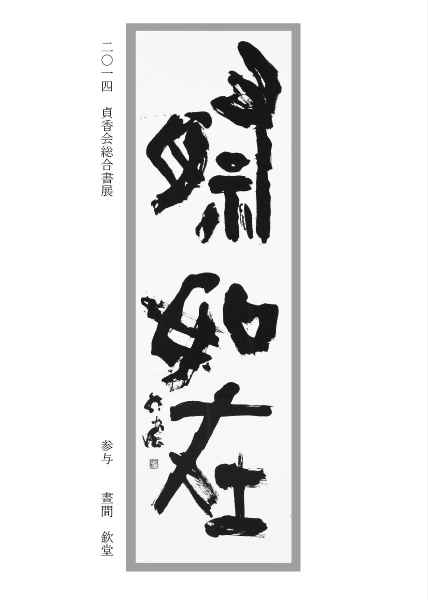 祭如在
二〇一四 貞香会総合書展
参与 晝間 欽堂